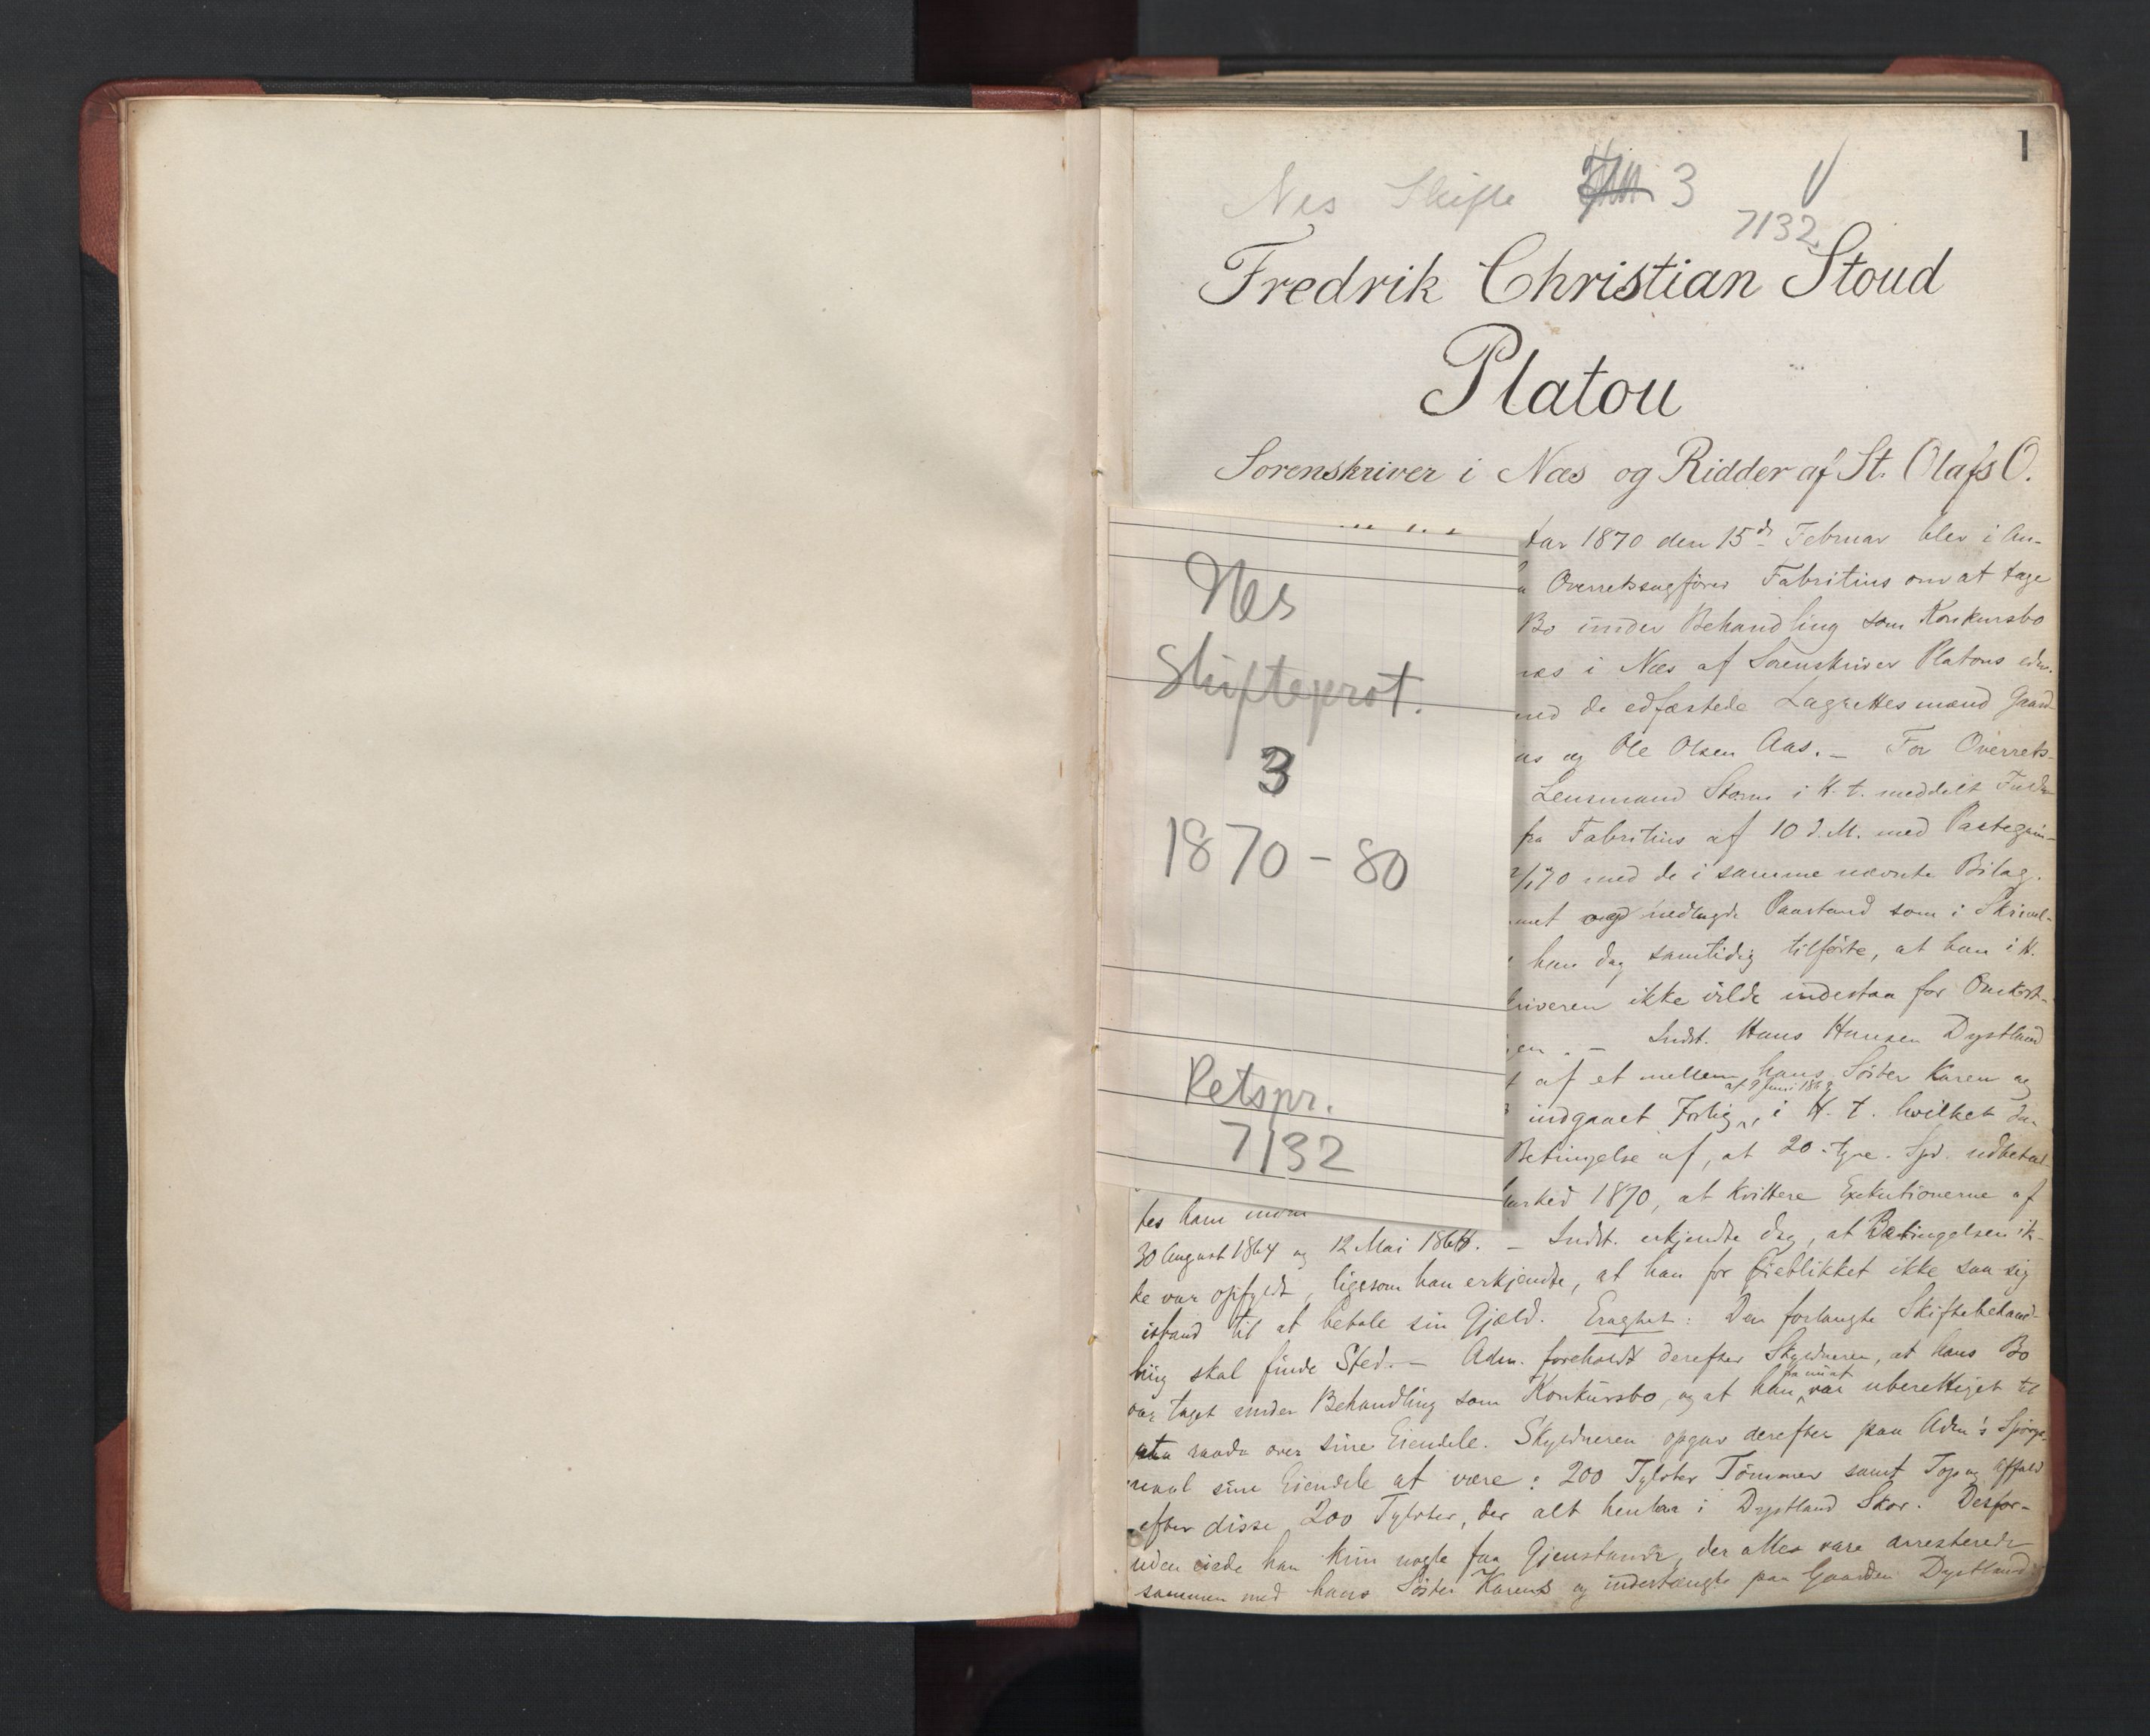 1
Nes Skifte 3
7132
Fredrik Christian Stoud
Platou
Sorenskriver i Næs og Ridder af St. Olafs O.
Nes
Skifteprot.
3
1870-80
Retspr.
7132
Aar 1870 den 15de Februar blev i An-
Overretssagfører Fabritius om at tage
Bo under Behandling som Konkursbo
næs i Næs af Sorenskriver Platous edsv.
med de edfæstede Lagrettesmænd Gaard-
og Ole Olsen Aas. – For Overrets-
Lensmand Storm i K. t. meddelt Fuldm
fra Fabritius af 10 d. M. med Paategnin-
70 med de i samme nævnte Bilag.
nedlagde Paastand som i Skrivel-
han dog samtidig tilførte, at han i H.
kriveren ikke vilde indestaa for Omkost-
gen. – Indst. Hans Hansen Dystland
af et mellem hans Søster Karen og
af 9 Juni 186
indgaaet Forlig, i H. t. hvilket
Betingelse af, at 20 tyve Spd. udbetal-
arked 1870, at kvittere Exekutionerne af
tes ham
30 August 1864 og 12 Mai 1868. – Indst. erkjendte dog, at Betingelsen ik-
ke var opfyldt, ligesom han erkjendte, at han for Øieblikket ikke saa sig
istand til at betale sin Gjæld. Eragtet: Den forlangte Skiftebehand-
ling skal finde Sted. – Adm. foreholdt derefter Skyldneren, at hans Bo
var taget under Behandling som Konkursbo, og at han fra nu af var uberettiget til
at raade over sine Eiendele. Skyldneren opgav derefter paa Adm's Spørgs-
maal sine Eiendele at være: 200 Tylvter Tømmer samt Top og Affald
efter disse 200 Tylvter, der alt henlaa i Dystland Skov. Desfor-
uden eiede han kun nogle faa Gjenstande, der alles vare arresterede
sammen med hans Søster Karens og indestængte paa Gaarden Dystland